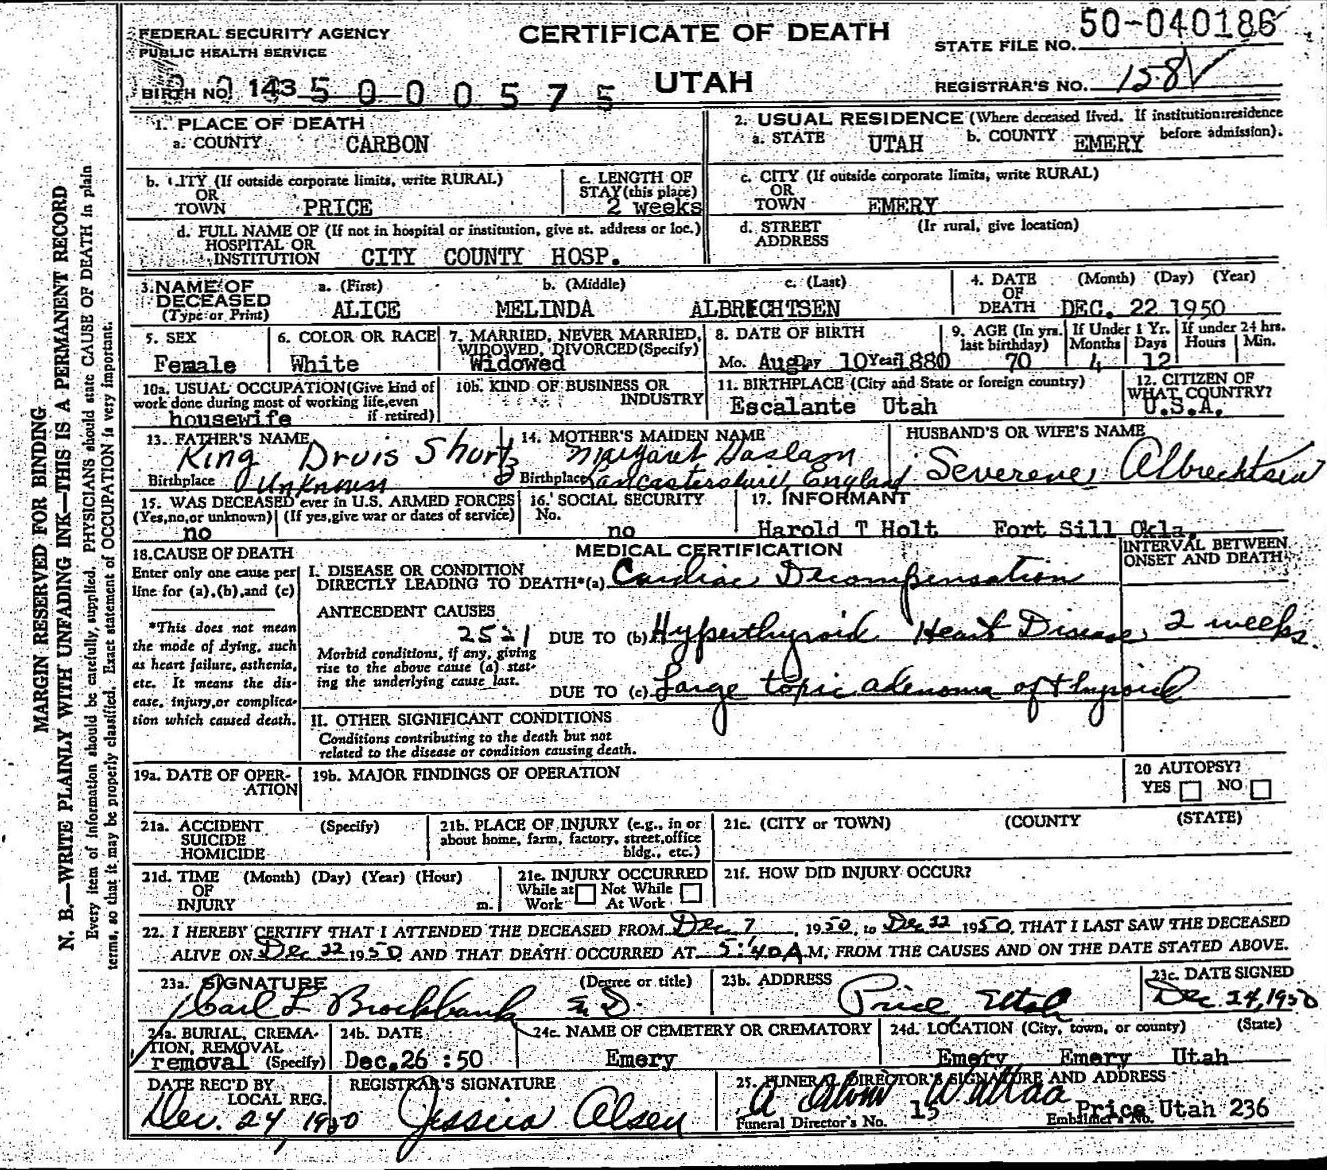 FEDERAL SECURITY AGENCY
PUBLIC HEALTH SERVICE
CERTIFICATE OF DEATH
UTAH
STATE FILE NO. 50-040186
REGISTRAR'S NO. 158
BIRTH NO. 143 5 0 0 0 5 7 5
1. PLACE OF DEATH
a. COUNTY CARBON
2. USUAL RESIDENCE (Where deceased lived. If institution: residence before admission).
a. STATE UTAH b. COUNTY EMERY
b. CITY (If outside corporate limits, write RURAL) OR TOWN PRICE
c. LENGTH OF STAY (this place) 2 weeks
c. CITY (If outside corporate limits, write RURAL) OR TOWN EMERY
d. FULL NAME OF (If not in hospital or institution, give st. address or loc.) HOSPITAL OR INSTITUTION CITY COUNTY HOSP.
d. STREET ADDRESS (If rural, give location)
3. NAME OF DECEASED (Type or Print) a. (First) ALICE b. (Middle) MELINDA c. (Last) ALBRECHTSEN
4. DATE OF DEATH (Month) (Day) (Year) DEC. 22 1950
5. SEX Female
6. COLOR OR RACE White
7. MARRIED, NEVER MARRIED, WIDOWED, DIVORCED (Specify) Widowed
8. DATE OF BIRTH Mo. Aug Day 10 Year 1880
9. AGE (In yrs. last birthday) 70
If Under 1 Yr. Months 4 Days 12
If under 24 hrs. Hours Min.
10a. USUAL OCCUPATION (Give kind of work done during most of working life, even if retired) housewife
10b. KIND OF BUSINESS OR INDUSTRY
11. BIRTHPLACE (City and State or foreign country) Escalante Utah
12. CITIZEN OF WHAT COUNTRY? U.S.A.
13. FATHER'S NAME King Druis Shurtz
Birthplace Unknown
14. MOTHER'S MAIDEN NAME Margaret Haslam
Birthplace Lancastershire, England
HUSBAND'S OR WIFE'S NAME Severene Albrechtsen
15. WAS DECEASED ever in U.S. ARMED FORCES (Yes, no, or unknown) (If yes, give war or dates of service) no
16. SOCIAL SECURITY No. no
17. INFORMANT Harold T Holt Fort Sill Okla.
18. CAUSE OF DEATH
Enter only one cause per line for (a), (b), and (c)
*This does not mean the mode of dying, such as heart failure, asthenia, etc. It means the disease, injury, or complication which caused death.
MEDICAL CERTIFICATION
INTERVAL BETWEEN ONSET AND DEATH
I. DISEASE OR CONDITION DIRECTLY LEADING TO DEATH* (a) Cardiac Decompensation
ANTECEDENT CAUSES
2521 DUE TO (b) Hyperthyroid Heart Disease 2 weeks.
Morbid conditions, if any, giving rise to the above cause (a) stating the underlying cause last.
DUE TO (c) Large topic adenoma of thyroid
II. OTHER SIGNIFICANT CONDITIONS
Conditions contributing to the death but not related to the disease or condition causing death.
19a. DATE OF OPERATION
19b. MAJOR FINDINGS OF OPERATION
20 AUTOPSY? YES NO
21a. ACCIDENT SUICIDE HOMICIDE (Specify)
21b. PLACE OF INJURY (e.g., in or about home, farm, factory, street, office bldg., etc.)
21c. (CITY or TOWN) (COUNTY (STATE)
21d. TIME OF INJURY (Month) (Day) (Year) (Hour) m.
21e. INJURY OCCURRED While at Work Not While At Work
21f. HOW DID INJURY OCCUR?
22. I HEREBY CERTIFY THAT I ATTENDED THE DECEASED FROM Dec. 7, 1950, to Dec 22 1950, THAT I LAST SAW THE DECEASED
ALIVE ON Dec 22 1950 AND THAT DEATH OCCURRED AT 5:40 A M, FROM THE CAUSES AND ON THE DATE STATED ABOVE.
23a. SIGNATURE (Degree or title) Carl L Brockbank M.D.
23b. ADDRESS Price Utah
23c. DATE SIGNED Dec 24, 1950
24a. BURIAL, CREMATION, REMOVAL (Specify) removal
24b. DATE Dec. 26 :50
24c. NAME OF CEMETERY OR CREMATORY Emery
24d. LOCATION (City, town, or county) (State) Emery Emery Utah
DATE REC'D BY LOCAL REG. Dec. 24, 1950
REGISTRAR'S SIGNATURE Jessica Olsen
25. FUNERAL DIRECTOR'S SIGNATURE AND ADDRESS
Price Utah
Funeral Director's No. 15 Embalmer's No. 236
MARGIN RESERVED FOR BINDING
N. B.—WRITE PLAINLY WITH UNFADING INK—THIS IS A PERMANENT RECORD
Every item of information should be carefully supplied. PHYSICIANS should state CAUSE OF DEATH in plain
terms, so that it may be properly classified. Exact statement of OCCUPATION is very important.